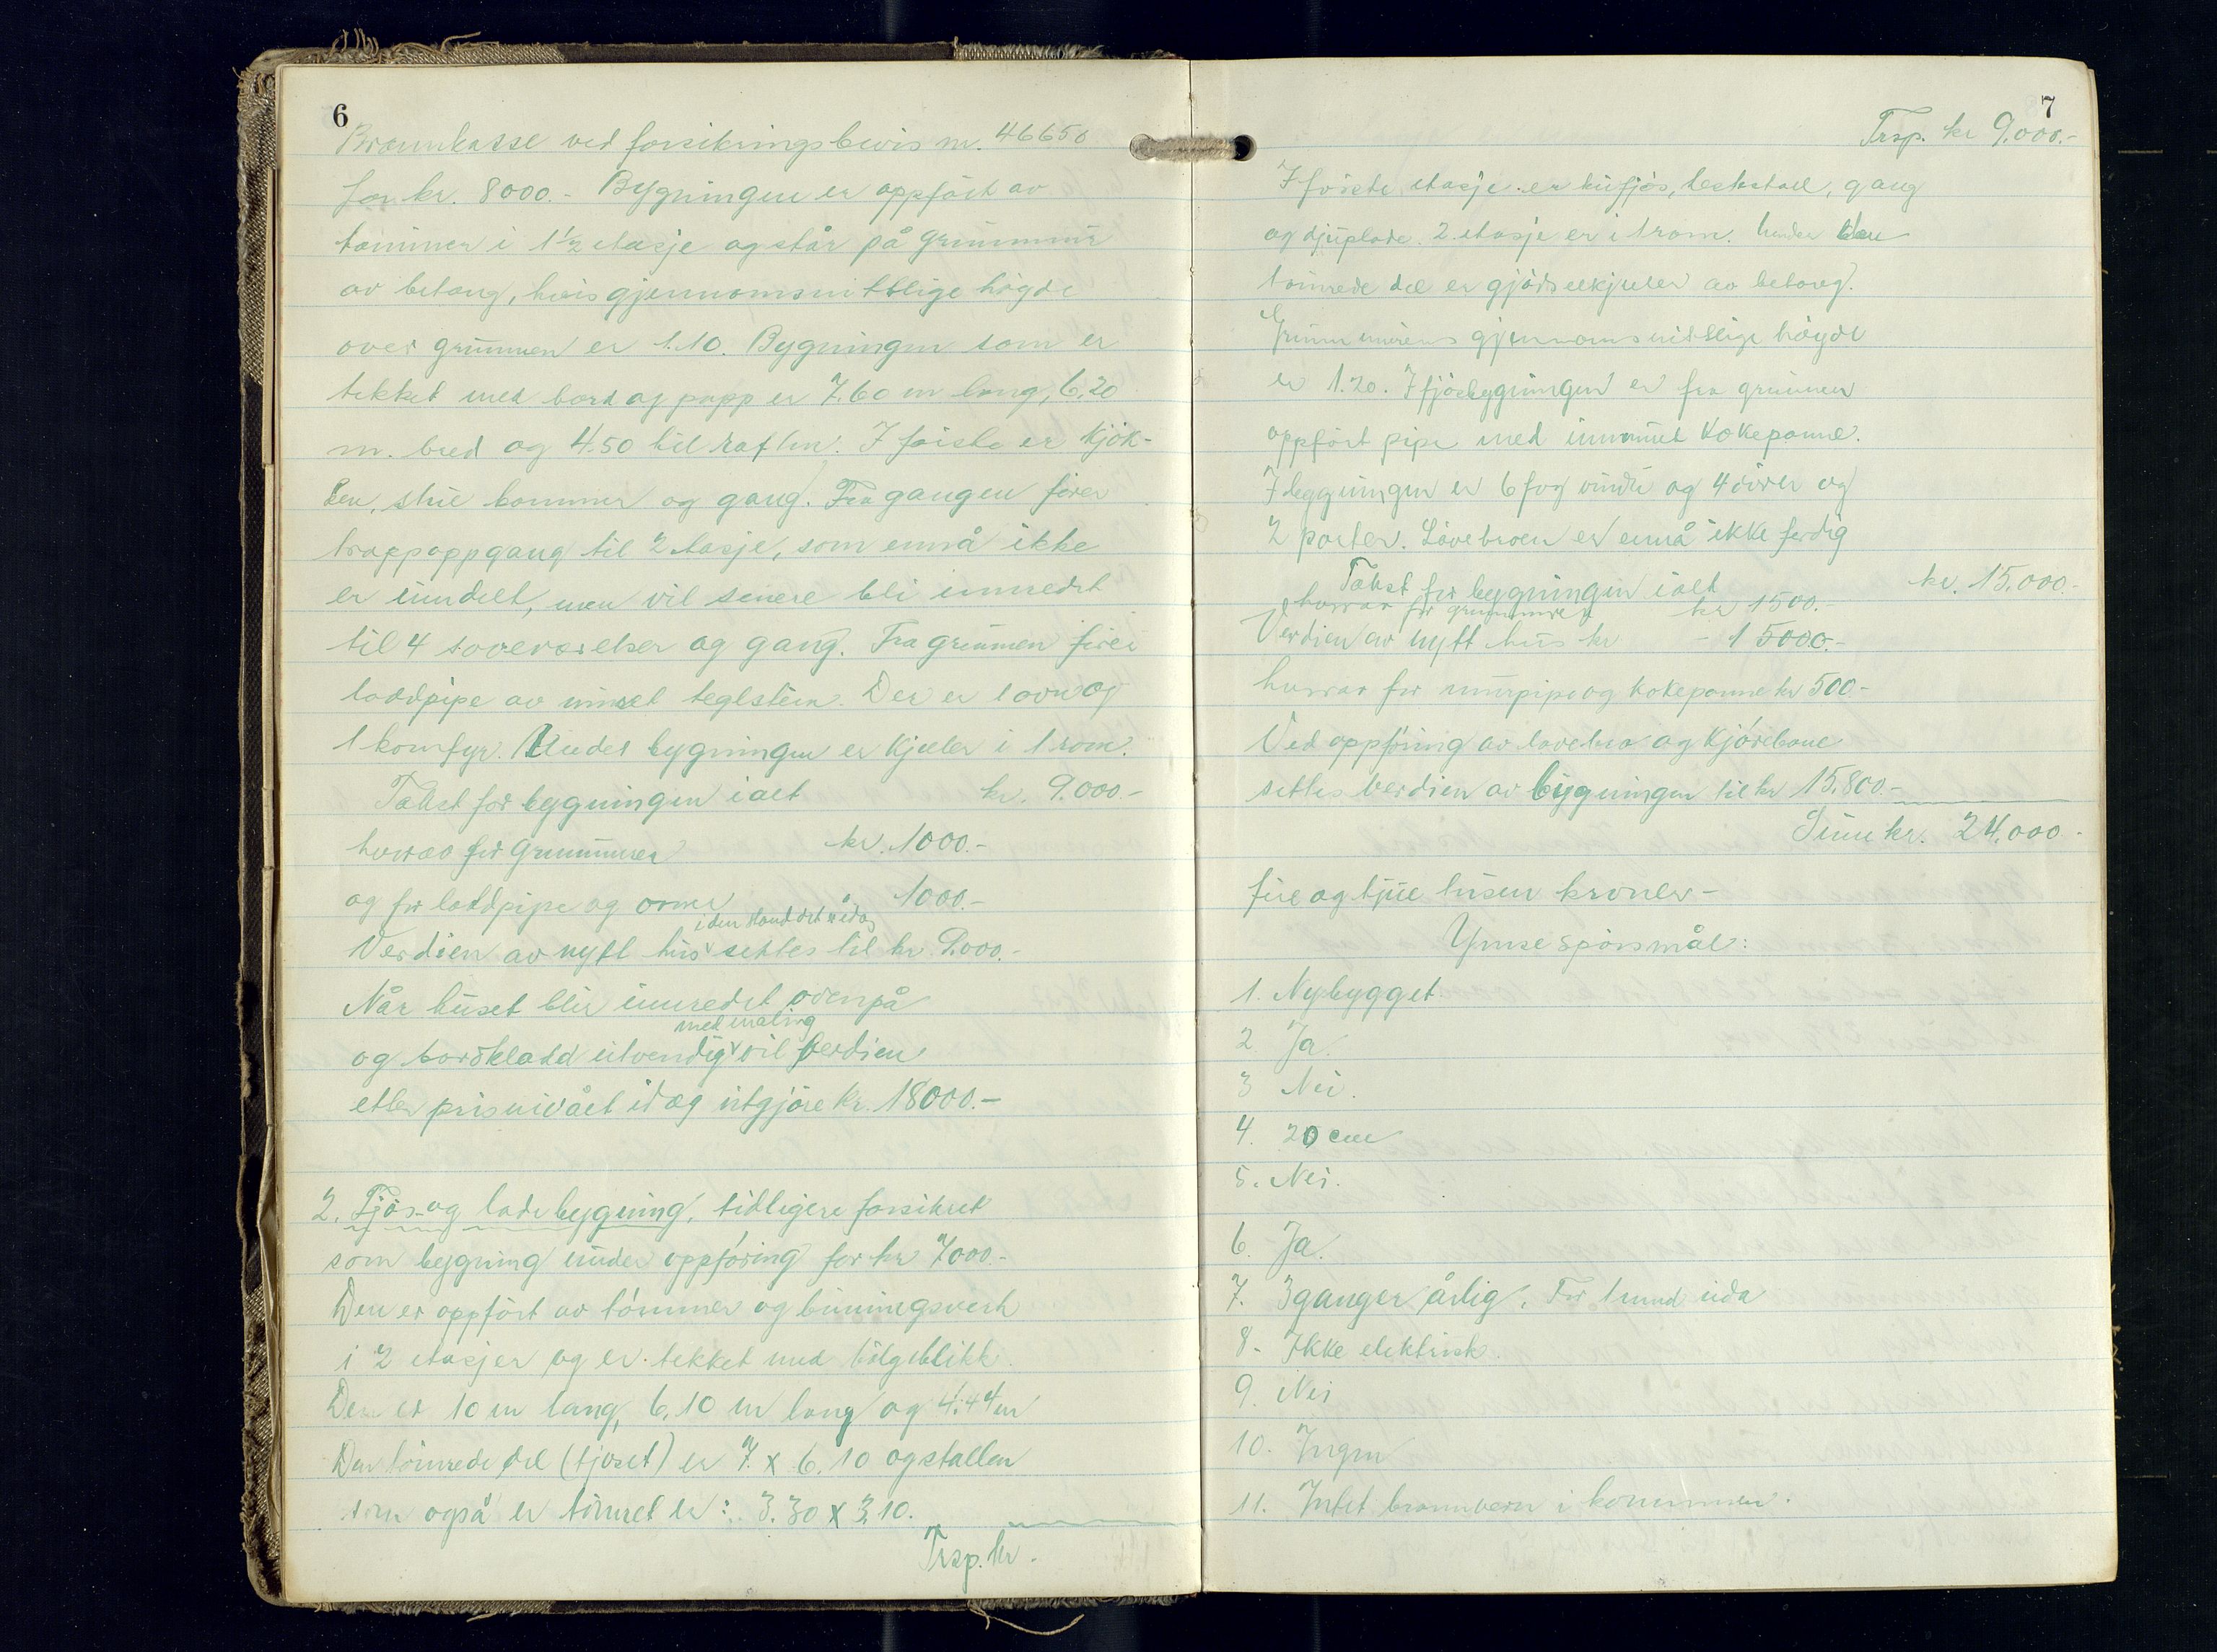 6
Brannkasse ved forsikringsbevis nr. 46650
for kr. 8000.- Bygningen er oppført av
tømmer i 1½ etasje og står på grunnmur
av betong, hvis gjennomsnittlige høgde
over grunnen er 1.10. Bygningen som er
tekket med bord og papp er 7.60 m lang, 6.20
m. bred og 4.50 til raften. I første er kjøk-
ken, stue kammer og gang. Fra gangen fører
trappoppgang til 2 etasje, som ennå ikke
er inndelt, men vil senere bli innredet
til 4 soveværelser og gang. Fra grunnen fører
loddpipe av muret teglstein. Der er 1 ovn og
1 komfyr. Under bygningen er kjeler i 1 rom.
Takst for bygningen ialt kr. 9.000.-
hvorav for grunnmuren kr. 1000.-
og for loddpipe og ovner " 1000.-
i den stand det er idag
Verdien av nytt hus settes til kr 9.000.-
Når huset blir innredet ovenpå
med maling
og bordkledd utvendig vil verdien
etter prisnivået idag utgjøre kr. 18000.-
2. Fjøs- og ladebygning, tidligere forsikret
som bygning under oppføring for kr 7000.-
Den er oppført av tømmer og binningsverk
i 2 etasjer og er tekket med bølgeblikk.
Den er 10 m lang, 6.10 m lang og 4.44 m
Den tømrede del (fjøset) er 7. x 6.10 og stallen
som også er tømret er: 3.30 x 3.10.
Trsp. kr.
7
Trsp. kr 9.000.-
I første etasje er kufjøs, hestestall, gang
og djuplade. 2. etasje er i 1 rom. Under den
tømrede del er gjødselkjeler av betong.
Grunnmurens gjennomsnittlige høgde
er 1.20. I fjøsbygningen er fra grunnen
oppført pipe med innmuret kokepanne.
I bygningen er 6 fag vindu og 4 dører og
2 porter. Låvebroen er ennå ikke ferdig
Takst for bygningen ialt kr. 15.000.-
hvorav for grunnmuren kr 1500.-
Verdien av nytt hus kr - 15000.-
hvorav for murpipe og kokepanne kr 500.-
Ved oppføring av lovebro og kjørebane
settes verdien av bygningen til kr 15.800.-
Sum kr. 24.000.-
fire og tjue tusen kroner -
Ymse spørsmål:
1. Nybygget
2 Ja.
3 Nei.
4. 20 cm
5. Nei.
6. Ja.
7. 3 ganger årlig. For 1 mnd sida
8- Ikke elektrisk.
9. Nei
10. Ingen
11. Intet brannvern i kommunen.